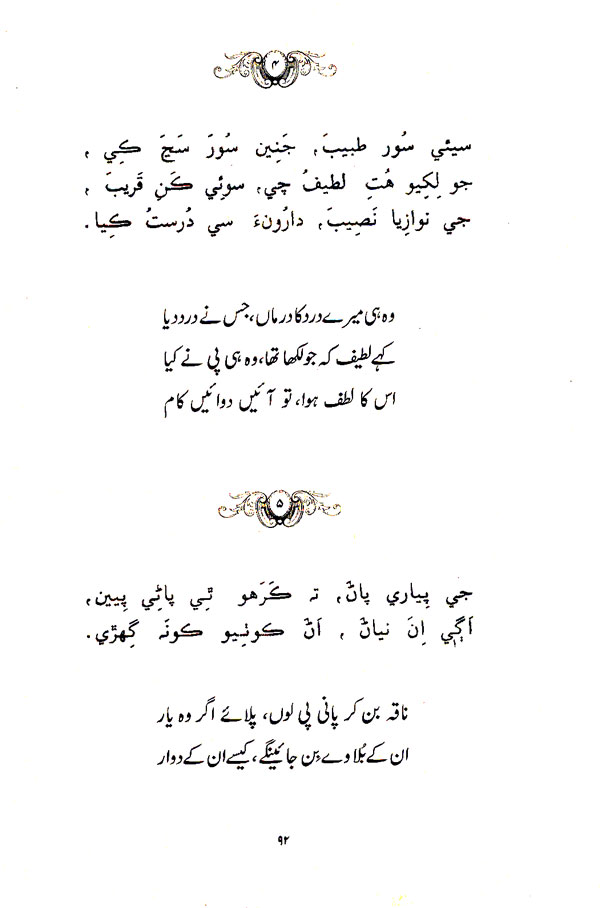 ۴
سيئي سُور طبيبَ، جَنِين سُورَ سَڄَ ڪِي ،
جو لِکِيو هُتِ لطيفُ چي، سوئِي ڪَنِ قَريبَ ،
جي نوازِيا نَصِيبَ، دارُونءَ سي دُرستُ ڪِيا.
وہ ہی میرے درد کا درماں، جس نے درد دیا
کہے لطیف کہ جو لکھا تھا، وہ ہی پی نے کیا
اس کا لطف ہوا، تو آئیں دوائیں کام
۵
جي پِياري پاڻَ، تہ ڪَرَهو ٿِي پاڻِي پِيين،
اَڳِي اِنَ نِياڻَ ، اَڻَ ڪوٺِيو ڪونَہ گِهڙي.
ناقہ بن کر پانی پی لوں، پلائے اگر وہ یار
ان کے بُلاوے بِن جائینگے، کیسے ان کے دوار
۹۲